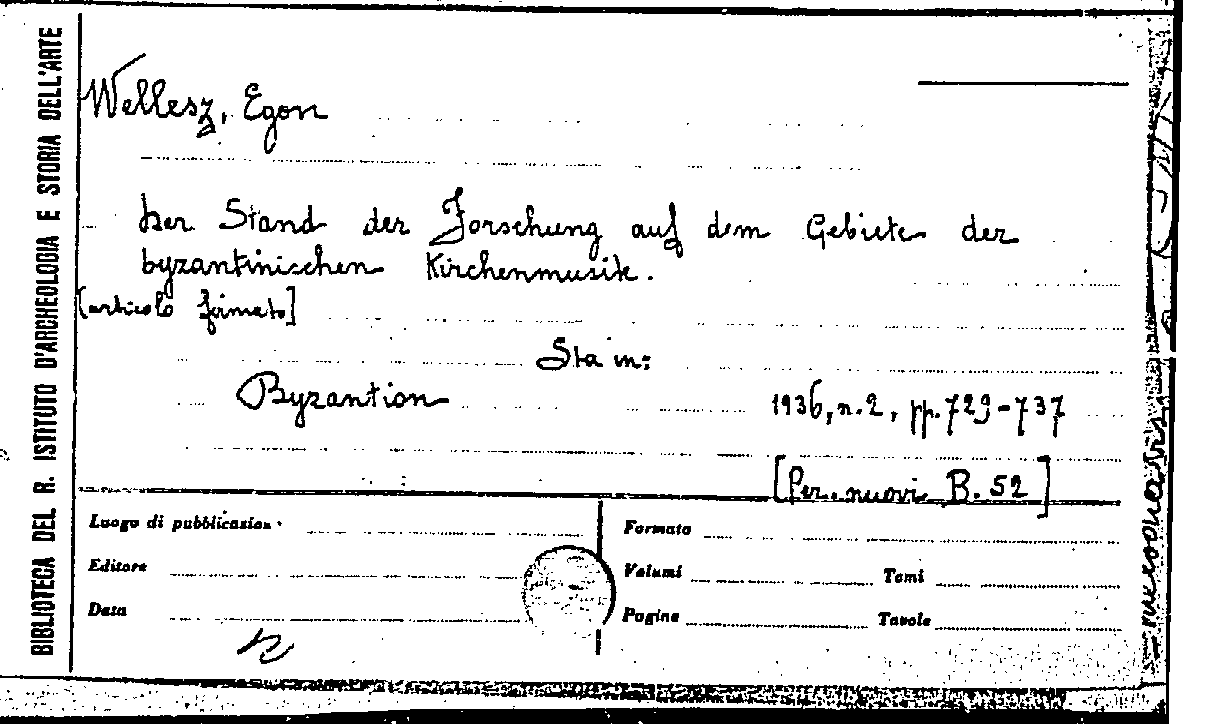 BIBLIOTECA DEL R. ISTITUTO D'ARCHEOLOGIA E STORIA DELL'ARTE
Wellesz, Egon
Der Stand der Forschung auf dem Gebiete der
byzantinischen Kirchenmusik.
[articolo firmato]
Sta in:
Byzantion 1936, n.2, pp. 729-737
[Per. nuovi B. 52]
Luogo di pubblicazion
Formato
Editore
Volumi Tomi
Data
Pagine Tavole